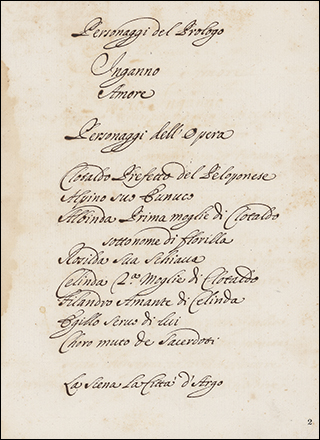 Personaggi del Prologo
Inganno
Amore
Personaggi dell' Opera
Clotaldo Prefetto del Peloponese
Alpino suo Eunuco
Albinda Prima moglie di Clotaldo
sottonome di Florilla
Rosilda sua Schiava
Celinda 2.a Moglie di Clotaldo
Filandro Amante di Celinda
Egillo servo di lui
Choro muto de Sacerdoti
La Scena La Città d'Argo
2